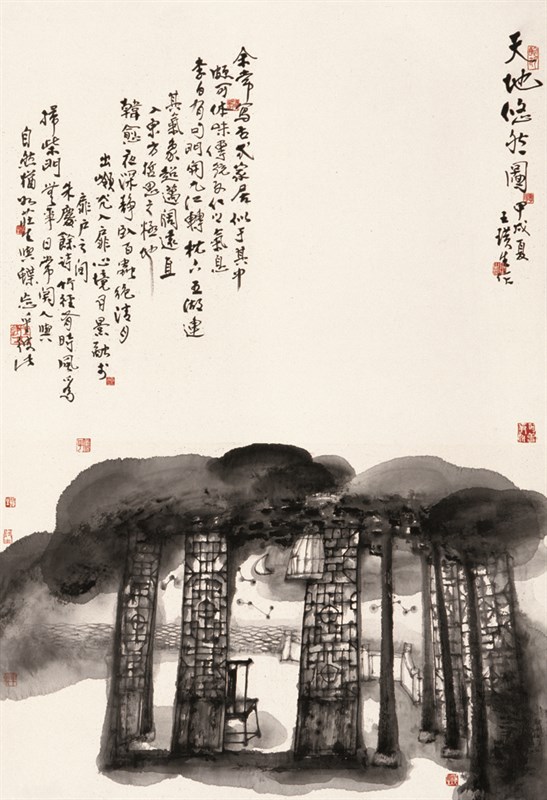 天地悠然圖
甲戌夏
王璜生作
余常寫古式家居似于其中
頗可体味傳統文化之氣息
李白有句門開九江轉枕下五湖連
其氣象超邁闊遠且
入東方哲思之極地
韓愈夜深靜卧百蟲絕清月
出嶺光入扉心境月景融於
扉戶之間
朱慶餘詩竹徑有時風為
掃柴門無事日常關人與
自然猶如莊生與蝶忘彼